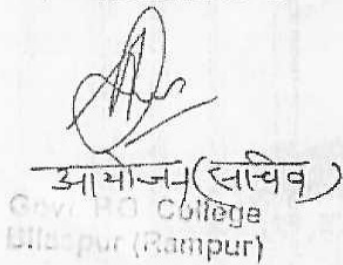 आयोजन (सचिव)
Govt P.G College
Bilaspur (Rampur)